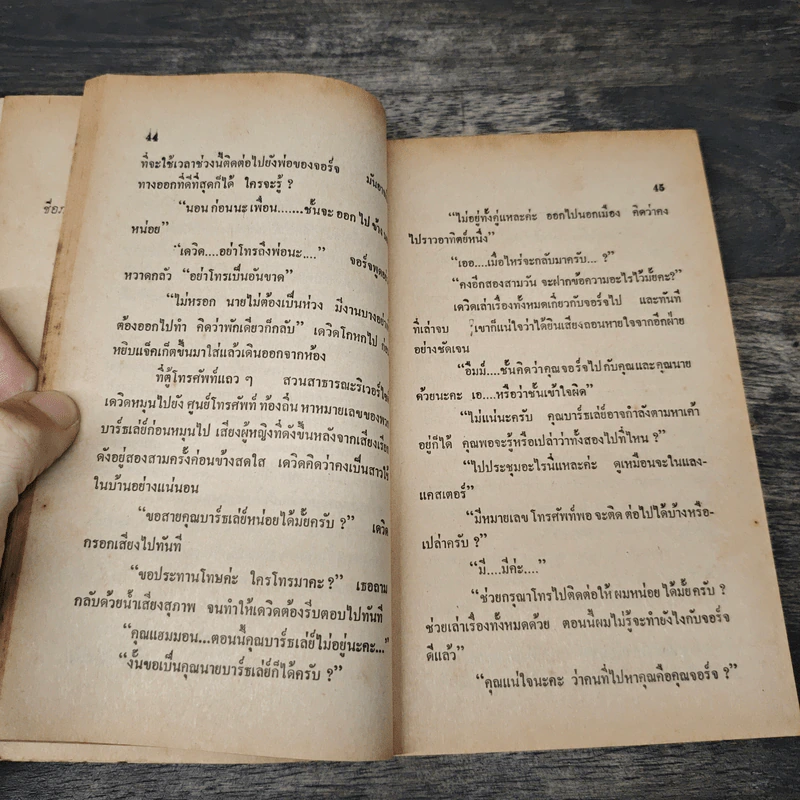 ชื่อภ
44
ที่จะใช้เวลาช่วงนี้ติดต่อไปยังพ่อของจอร์จ
ทางออกที่ดีที่สุดก็ได้ ใครจะรู้ ?
“นอน ก่อนนะ เพื่อน.......ชั้นจะ ออก ไป ข้าง
หน่อย”
“เดวิด....อย่าโทรถึงพ่อนะ....” จอร์จพูดอย่า
หวาดกลัว “อย่าโทรเป็นอันขาด”
“ไม่หรอก นายไม่ต้องเป็นห่วง มีงานบางอย่าง
ต้องออกไปทำ คิดว่าพักเดียวก็กลับ” เดวิดโกหกไป ก่อน
หยิบแจ็คเก็ตขึ้นมาใส่แล้วเดินออกจากห้อง
ที่ตู้โทรศัพท์แถว ๆ สวนสาธารณะริเวอร์ไซด์
เดวิดหมุนไปยัง ศูนย์โทรศัพท์ ท้องถิ่น หาหมายเลขของพวก
บาร์ธเล่ย์ก่อนหมุนไป เสียงผู้หญิงที่ดังขึ้นหลังจากเสียงเรียก
ดังอยู่สองสามครั้งค่อนข้างสดใส เดวิดคิดว่าคงเป็นสาวใช้
ในบ้านอย่างแน่นอน
“ขอสายคุณบาร์ธเล่ย์หน่อยได้มั้ยครับ ?” เดวิด
กรอกเสียงไปทันที
“ขอประทานโทษค่ะ ใครโทรมาคะ ?” เธอถาม
กลับด้วยน้ำเสียงสุภาพ จนทำให้เดวิดต้องรีบตอบไปทันที
“คุณแฮมมอน...ตอนนี้คุณบาร์ธเล่ย์ไม่อยู่นะคะ...”
“งั้นขอเป็นคุณนายบาร์ธเล่ย์ก็ได้ครับ ?”
45
“ไม่อยู่ทั้งคู่แหละค่ะ ออกไปนอกเมือง คิดว่าคง
ไปราวอาทิตย์หนึ่ง”
“เออ....เมื่อไหร่จะกลับมาครับ... ?”
“คงอีกสองสามวัน จะฝากข้อความอะไรไว้มั้ยคะ?”
เดวิดเล่าเรื่องทั้งหมดเกี่ยวกับจอร์จไป และทันที
ที่เล่าจบ เขาก็แน่ใจว่าได้ยินเสียงถอนหายใจจากอีกฝ่าย
อย่างชัดเจน
“อืมม์....ชั้นคิดว่าคุณจอร์จไปกับคุณและคุณนาย
ด้วยนะคะ เอ....หรือว่าชั้นเข้าใจผิด”
“ไม่แน่นะครับ คุณบาร์ธเล่ย์อาจกำลังตามหาเค้า
อยู่ก็ได้ คุณพอจะรู้หรือเปล่าว่าทั้งสองไปที่ไหน ?”
“ไปประชุมอะไรนี่แหละค่ะ ดูเหมือนจะในแลง-
แคสเตอร์”
“มีหมายเลข โทรศัพท์พอ จะติด ต่อไปได้บ้างหรือ-
เปล่าครับ ?”
“มี....มีค่ะ....”
“ช่วยกรุณาโทรไปติดต่อให้ ผมหน่อย ได้ มั้ย ครับ ?
ช่วยเล่าเรื่องทั้งหมดด้วย ตอนนี้ผมไม่รู้จะทำยังไงกับจอร์จ
ดีแล้ว”
“คุณแน่ใจนะคะ ว่าคนที่ไปหาคุณคือคุณจอร์จ ?”